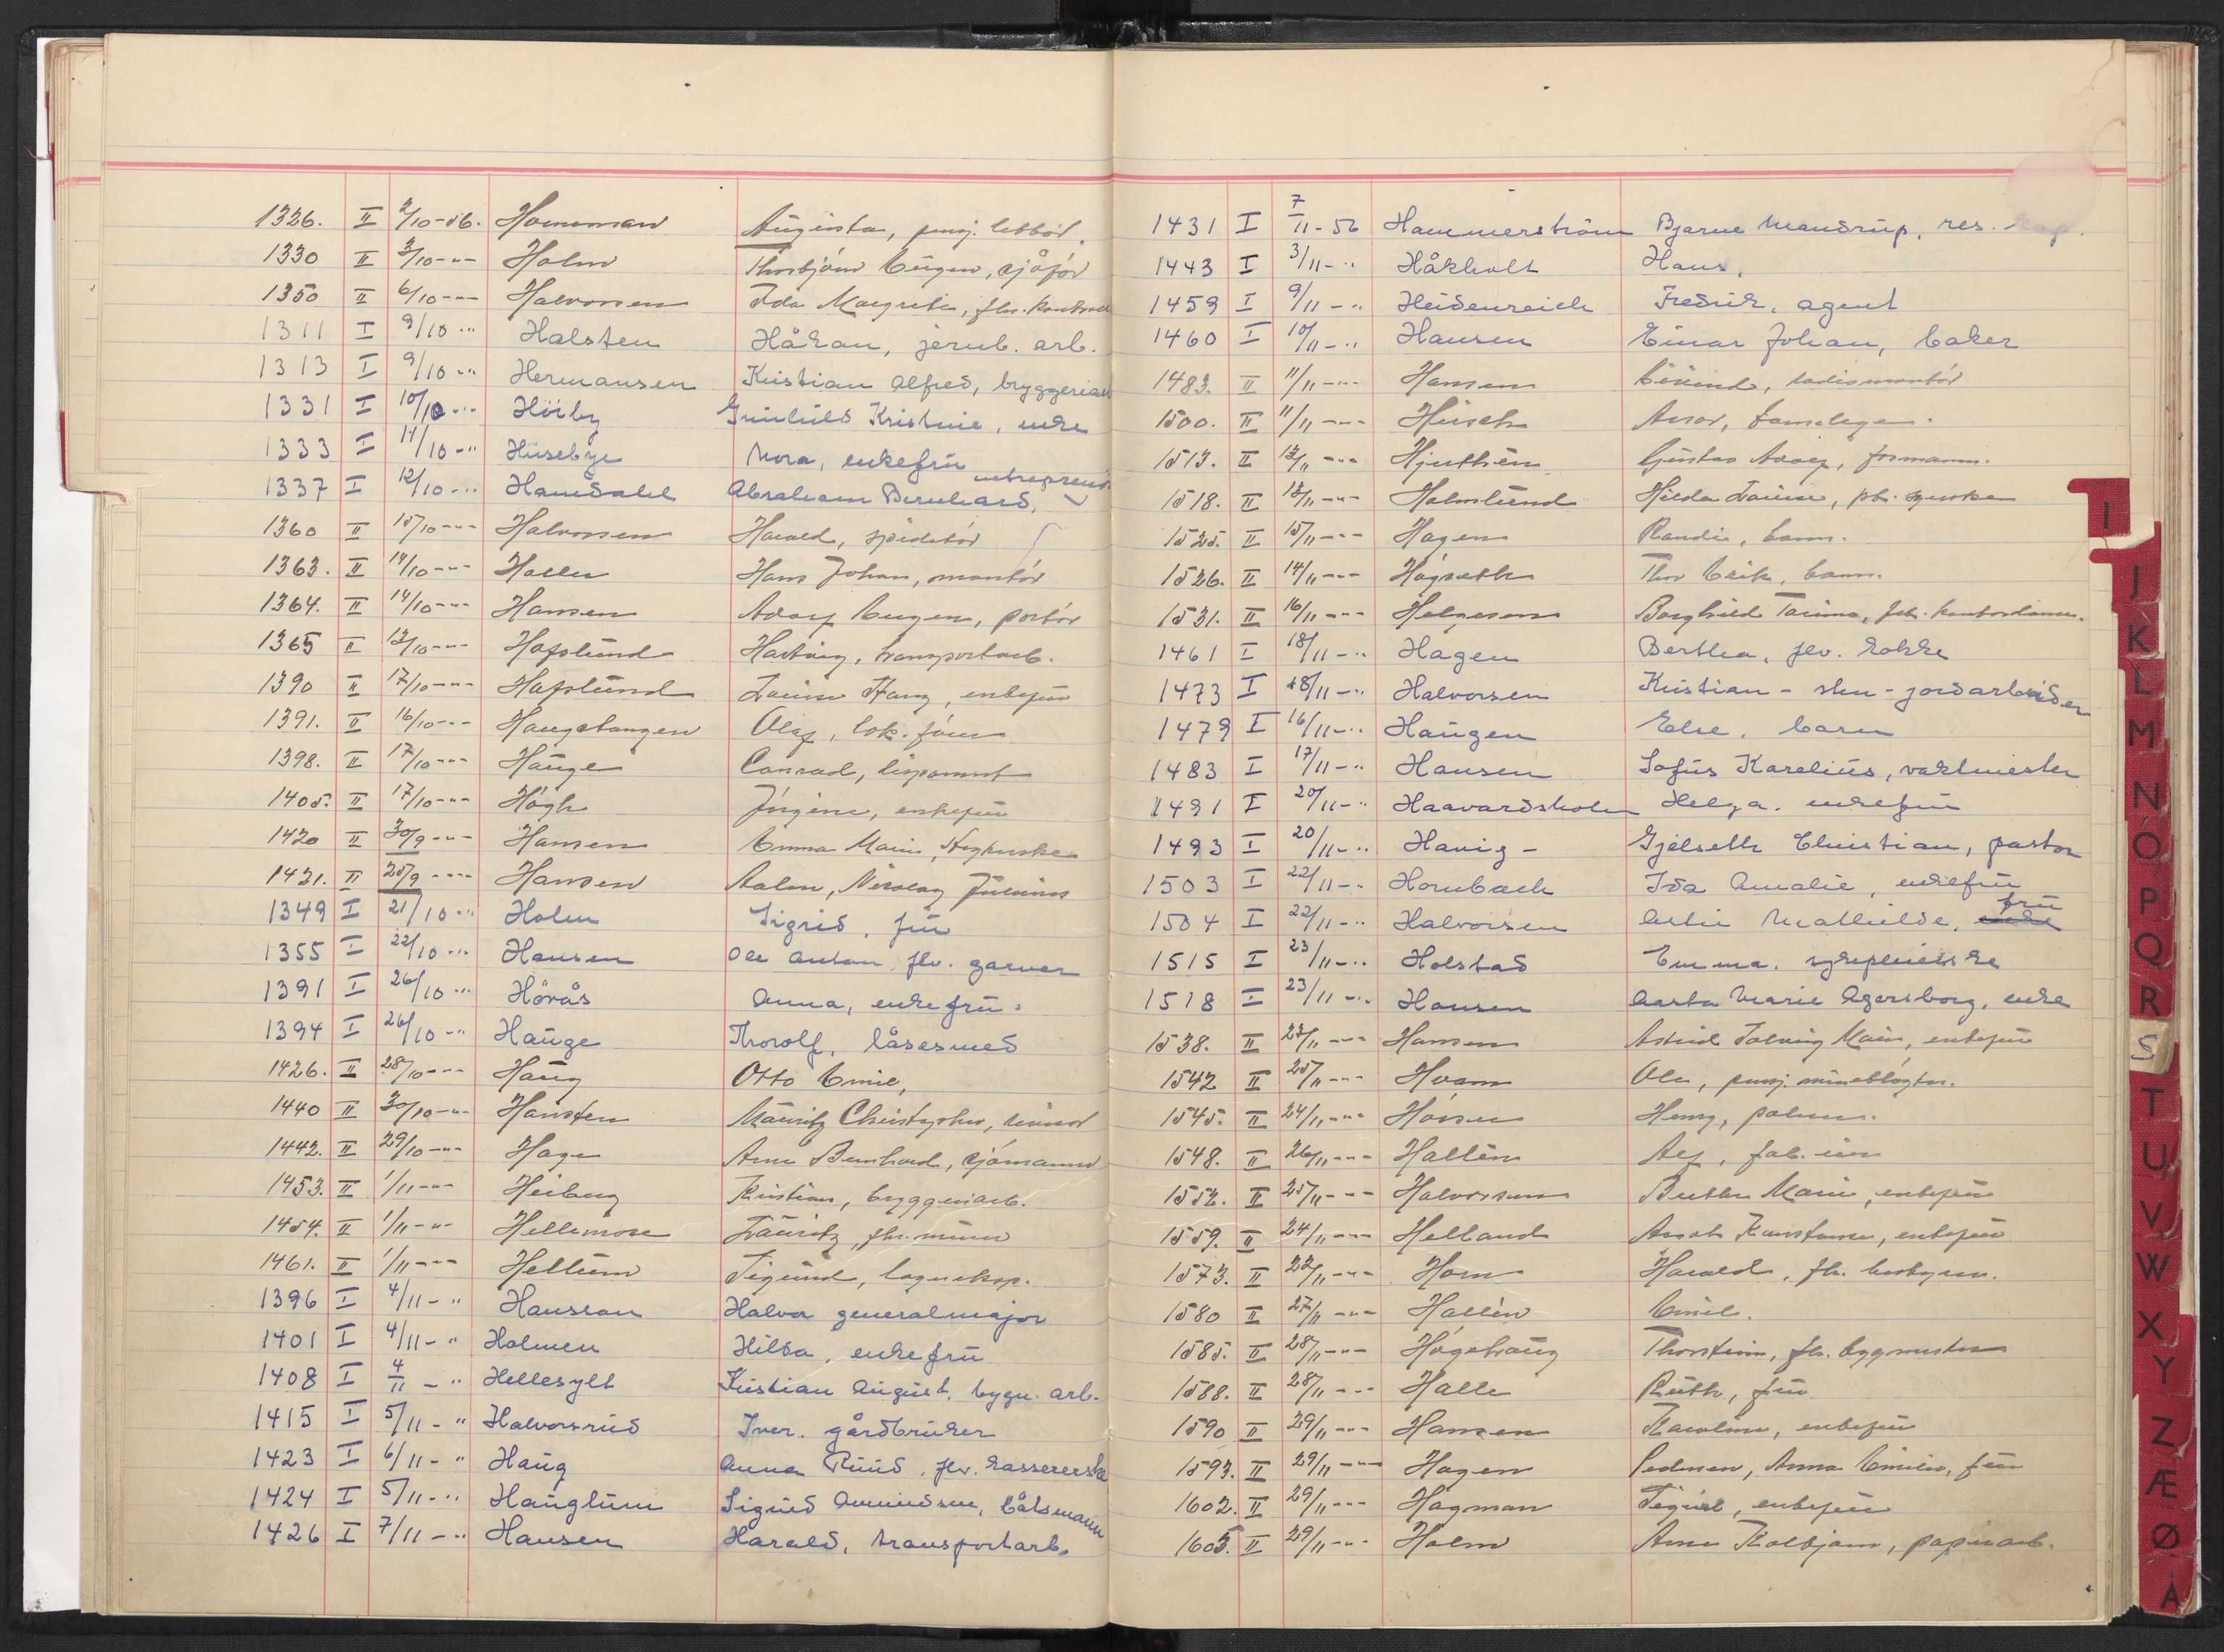 1326. II 2/10-56. Horneman Augusta, pensj. lektor.
1330 II 3/10-"- Holm Thorbjørn Eugen, sjåför
1350 II 6/10-"- Halvorsen Ida Margrethe, fhv.
1311 I 9/10 "" Halsten Håkan, jernb. arb.
1313 I 9/10 "" Hermansen Kristian Alfred, bryggeriarb
1331 I 10/10 "" Höiby Gunhild Kristine, enke
1333 I 11/10 -" Husebye Nora, enkefru
1337 I 12/10 -"" Hamdahl Abraham Bernhard, entreprenör
1360 II 15/10-"- Halvorsen Harald, speditör
1363. II 14/10-"- Haller Hans Johan, montör
1364. II 14/10-"- Hansen Adolf Eugen, portör
1365 II 13/10-"- Hafslund Hartvig, transportarb.
1390 II 17/10-"- Hafslund Louise Haug, enkefru
1391. II 16/10-"- Haugstangen Olaf, lok. förer
1398. II 17/10-"- Hauge Conrad, disponent
1405. II 17/10-"- Högh Jörgine, enkefru
1420 II 30/9-"- Hansen Emma Marie,
1421. II 25/9-"- Hansen Nicolay Julius
1349 I 21/10 "" Holm Sigrid, fru
1355 I 22/10 "" Hansen Ole Anton, fhv. garver
1391 I 26/10 "" Hörås Anna, enkefru.
1394 I 26/10 -" Hauge Thorolf, låsesmed
1426. II 28/10-"- Haug Otto Emil,
1440 II 30/10-"- Hansten Mauritz Christopher,
1442. II 29/10-"- Hage Arne Bernhard, sjömann
1453. II 1/11-"- Heiberg Kristian, bryggeriarb.
1454. II 1/11-"- Hellemose Lauritz, fhv. murer
1461. II 1/11-"- Hellum Sigurd, lagereksp.
1396 I 4/11-" Hansson Halvor generalmajor
1401 I 4/11-" Holmen Hilda, enkefru
1408 I 4/11-" Hellesylt Kristian August, bygn. arb.
1415 I 5/11-" Halvorsrud Iver. gårdbruker
1423 I 6/11-" Haug Anna Ruud, fhv. kassererske
1424 I 5/11-" Hauglum Sigurd Amundsen, båtsmann
1426 I 7/11-" Hansen Harald, transportarb.
1431 I 7/11-56 Hammerström Bjarne Mandrup, res. kap.
1443 I 3/11-" Håkholt Hans,
1459 I 9/11-" Heidenreich Fredrik, agent
1460 I 10/11-" Hansen Einar Johan, baker
1483. II 11/11-"- Hansen Eivind, radiomontör
1500. II 11/11-"- Hirsch
1513. II 12/11-"- Hjulthén Gustav Adolf, formann.
1518. II 13/11-"- Holmlund Hilda Louise,
1525. II 15/11-"- Hagen Randi, barn.
1526. II 14/11-"- Högseth Thor Erik, barn.
1531. II 16/11-"- Helgesen Borghild fhv. kontordame.
1461 I 18/11-" Hagen Berthea, fhv. kokke
1473 I 18/11-" Halvorsen Kristian - sten-jordarbeider
1479 I 16/11-" Haugen Else. barn
1483 I 17/11-" Hansen Sofus Karelius, vaktmester
1491 I 20/11-" Haavardsholm Helga. enkefru
1493 I 20/11-" Havig - Gjelseth Christian, pastor
1503 I 22/11-" Hornbach Ida Amalie, enkefru
1504 I 22/11-" Halvorsen Mathilde, enke fru
1515 I 23/11-" Holstad Emma. sykepleierske
1518 I 23/11-" Hansen Aasta Marie Agersborg, enke
1538. II 23/11-"- Hansen Astrid Solveig Marie, enkefru
1542 II 25/11-"- Hvam Ole, pensj.
1545. II 24/11-"- Henry,
1548. II 26/11-"- Hallén Alf, fab. eier
1552. II 25/11-"- Halvorsen Berthe Marie, enkefru
1559. II 24/11-"- Helland enkefru
1573. II 22/11-"- Horn Harald, fh.
1580 II 27/11-"- Hallén Emil.
1585. II 28/11-"- Högehaug Thorstein, fh. byggmester
1588. II 28/11-"- Halle Ruth, fru
1590 II 29/11-"- Hansen Karoline, enkefru
1593. II 29/11-"- Hagen Pedersen, Anna Emilie, fru
1602. II 29/11-"- Hagman enkefru
1605. II 29/11-"- Holm Arne Kolbjørn, papirarb.
I
J
K
L
M
N
O
P
Q
R
S
T
U
V
W
X
Y
Z
Æ
Ø
Å